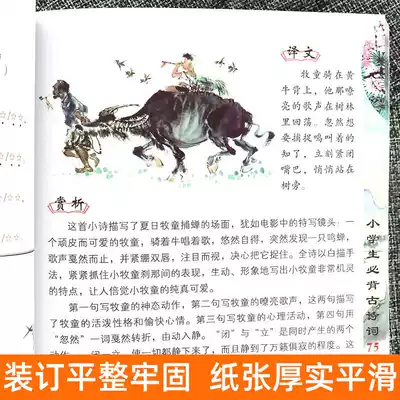 译文
牧童骑在黄
牛背上，他那嘹
亮的歌声在树林
里回荡。忽然想
要捕捉鸣叫着的
知了，立刻紧闭
嘴巴，悄悄站在
树旁。
赏析
这首小诗描写了夏日牧童捕蝉的场面，犹如电影中的特写镜头：一
个顽皮而可爱的牧童，骑着牛唱着歌，悠然自得，突然发现一只鸣蝉，
歌声戛然而止，并紧绷双唇，注目而视，决心把它捉住。全诗以白描手
法，紧紧抓住小牧童刹那间的表现，生动、形象地写出小牧童非常机灵
的特点，让人倍觉小牧童的纯真可爱。
第一句写牧童的神态动作，第二句写牧童的嘹亮歌声，这两句描写
了牧童的活泼性格和愉快心情。第三句写牧童的心理活动，第四句用
“忽然”一词戛然转折，由动入静。“闭”与“立”是同时产生的两个
使一切都静下来，而且静到了万籁俱寂的程度。这
小学生必背古诗词
75
装订平整牢固 纸张厚实平滑